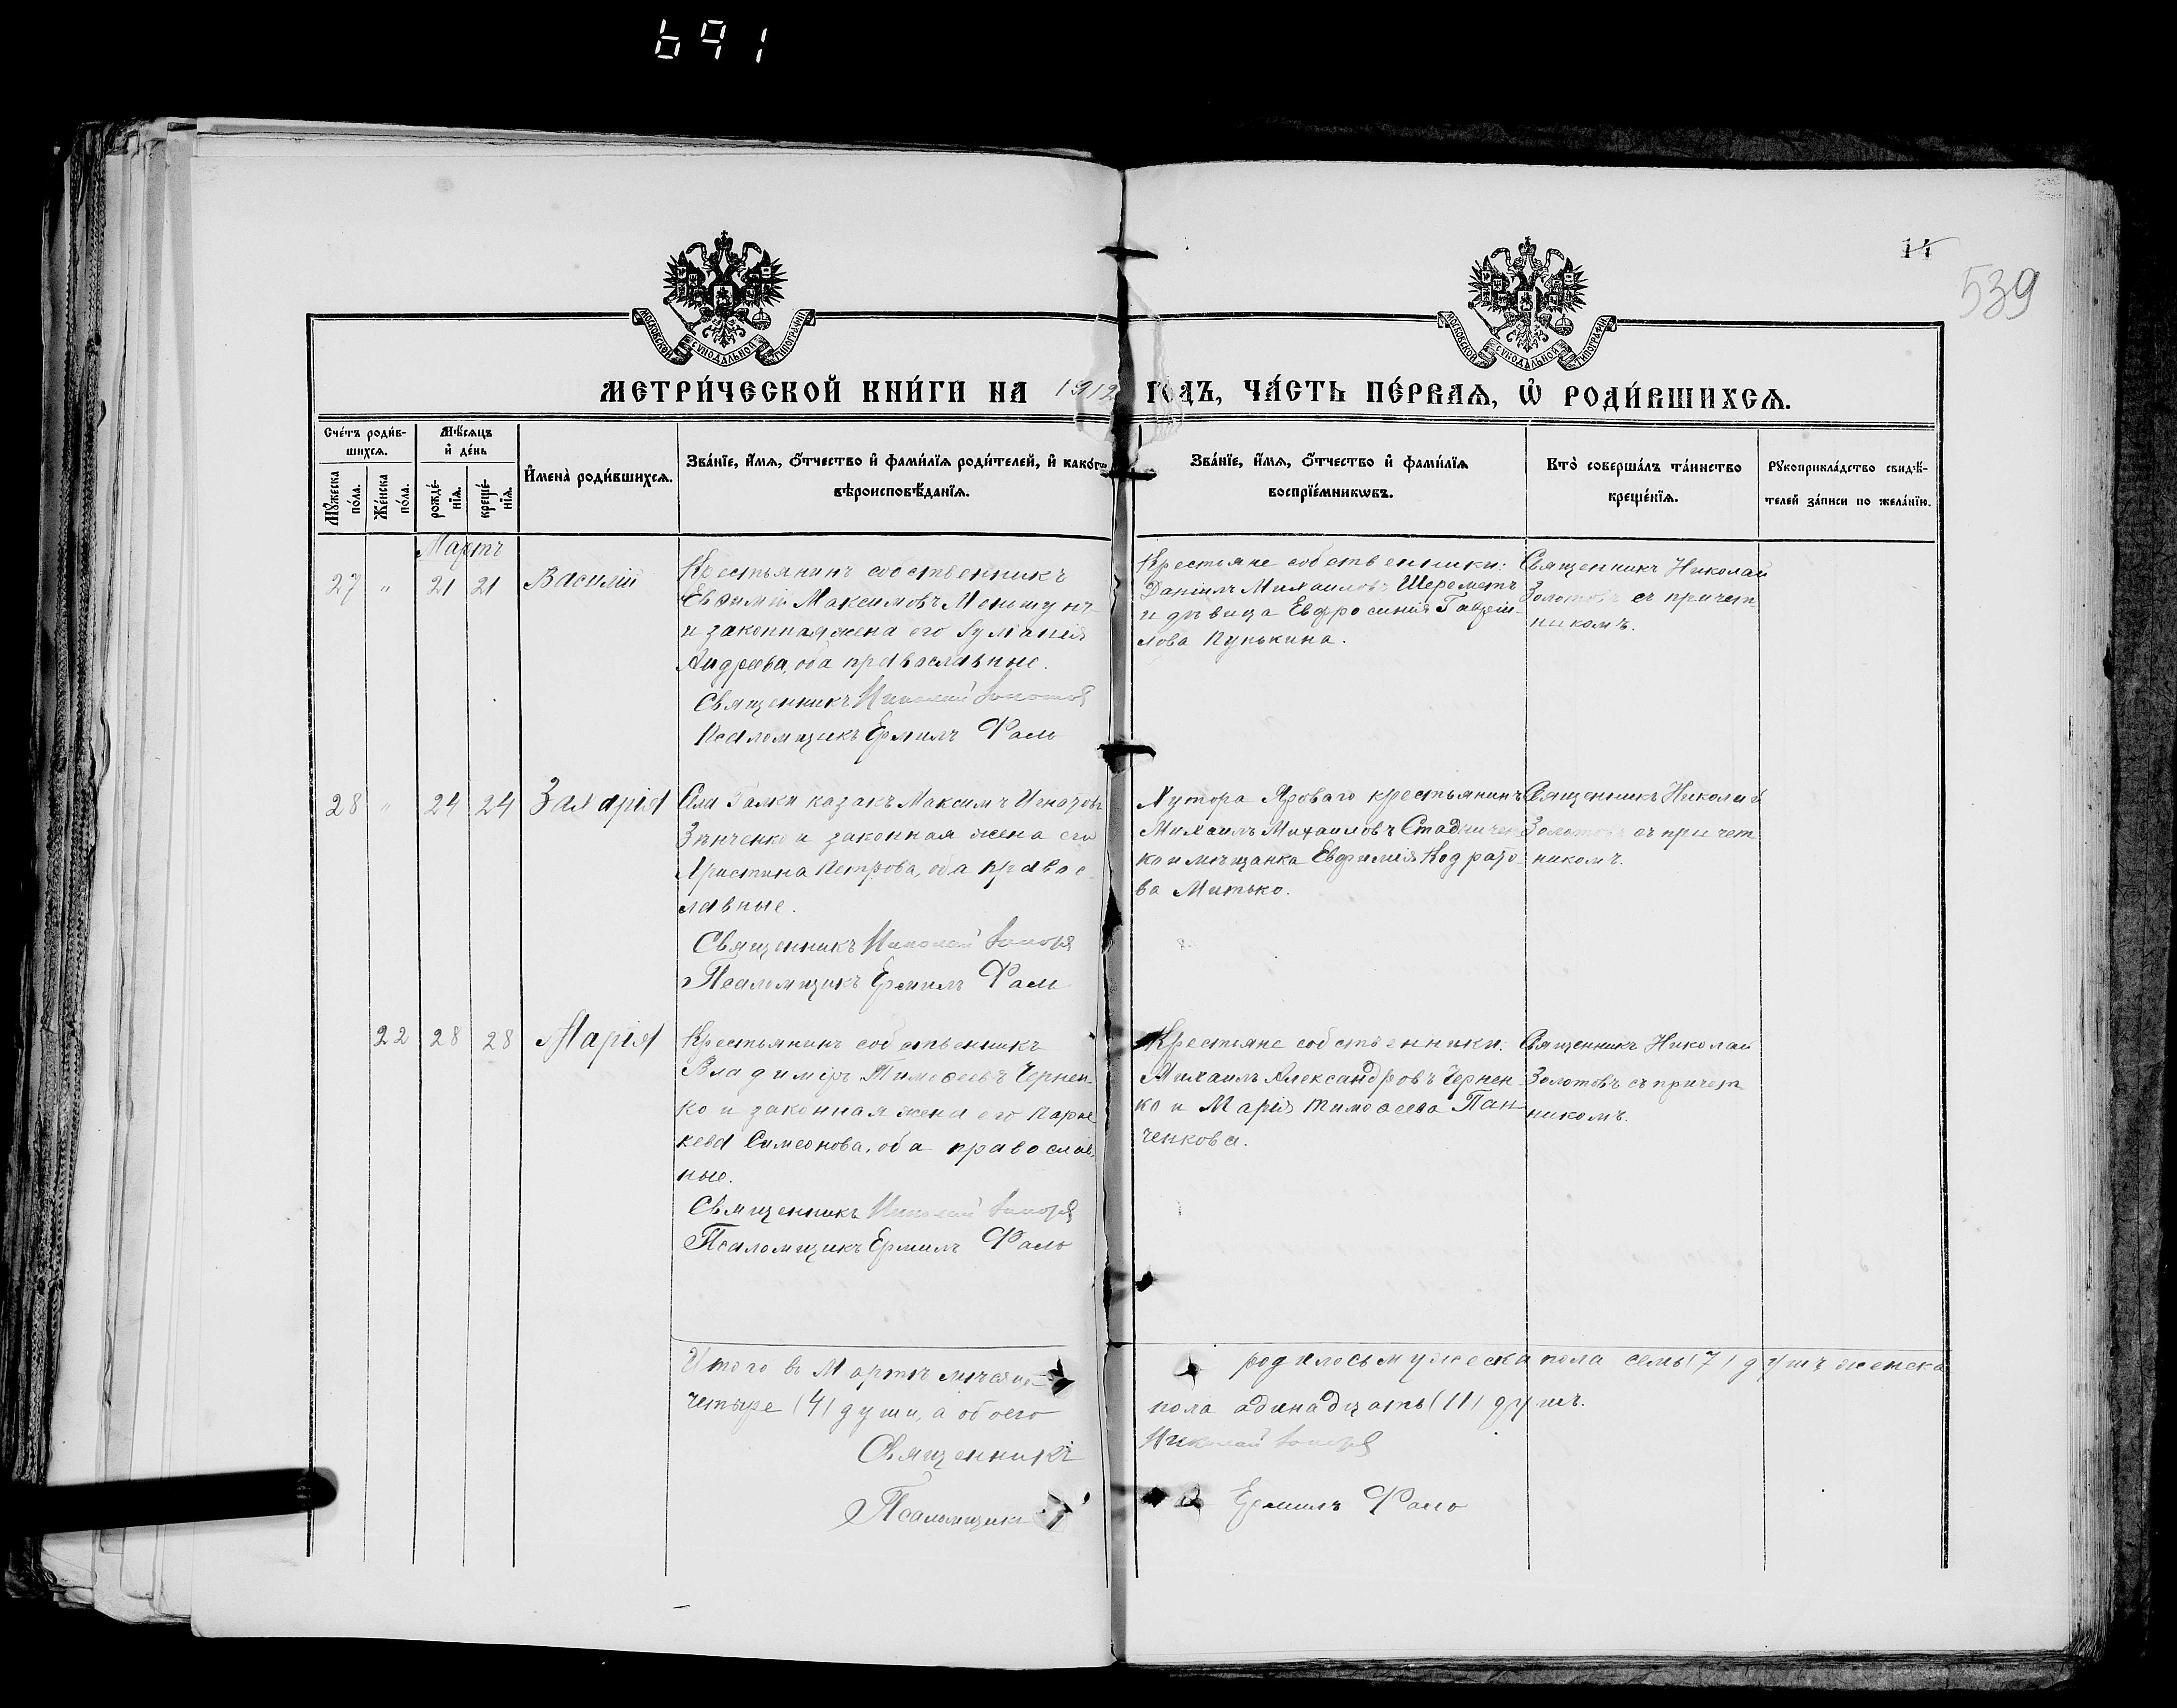 691
14
539
МОСКОВСКОЙ СѴНОДАЛЬНОЙ ТИПОГРАФІИ
МОСКОВСКОЙ СѴНОДАЛЬНОЙ ТИПОГРАФІИ
МЕТРИ́ЧЕСКОЙ КНИ́ГИ НА 1912 ГОДЪ, ЧА́СТЬ ПЕ́РВАѦ, Ѡ҆ РОДИ́ВШИХСѦ.
Сче́тъ роди́в-
шихсѧ.
Мꙋ́жеска по́ла.
Же́нска по́ла.
Мѣ́сѧцъ
и҆ де́нь
рожде́-нїѧ.
креще́-нїѧ.
И҆мена̀ роди́вшихсѧ.
Зва́нїе, и҆́мѧ, ѻ҆́тчество и҆ фами́лїѧ роди́телей, и҆ како́гѡ
вѣроисповѣ́данїѧ.
Зва́нїе, и҆́мѧ, ѻ҆́тчество и҆ фами́лїѧ
воспрїе́мникѡвъ.
Кто̀ соверша́лъ та́инство
креще́нїѧ.
Рꙋкоприкла́дство свидѣ́-
телей за́писи по жела́нїю.
Мартъ
27 " 21 21 Василій
Крестьянинъ собственникъ
Евѳимій Максимовъ Меньшунъ
и законная жена его
Андреева, оба православные.
Священникъ Николай Золотовъ
Псаломщикъ Ермилъ Фаль
Крестьяне собственники:
Даніилъ Михаиловъ Шереметъ
и дѣвица Евфросинія Гавріи-
лова Пунькина.
Священникъ Николай
Золотовъ съ причет
никомъ.
28 " 24 24 Захарія
Села Галки казакъ Максимъ Игнатовъ
Зѣнченко и законная жена его
Христина Петрова, оба правос-
лавные.
Священникъ Николай Золотовъ
Псаломщикъ Ермилъ Фаль
Хутора Яроваго крестьянинъ
Михаилъ Михаиловъ Стадничен
ко и мѣщанка Евфимія Кодрато-
ва Митько.
Священникъ Николай
Золотовъ съ причет
никомъ.
22 28 28 Марія
Крестьянинъ собственникъ
Владиміръ Тимоѳеевъ Чернен-
ко и законная жена его Парас
кева Симеонова, оба православ,
ные.
Священникъ Николай Золотовъ
Псаломщикъ Ермилъ Фаль
Крестьяне собственники:
Михаилъ Александровъ Чернен-
ко и Марія Тимоѳеева Пан
ченкова.
Священникъ Николай
Золотовъ съ причет
никомъ.
Итого въ Мартѣ мѣсяцѣ родилось мужеска пола семь (7) душъ женска
четыре (4) души, а обоего пола адинадцать (11) душъ.
Священникъ Николай Золотовъ
Псаломщикъ Ермилъ Фаль